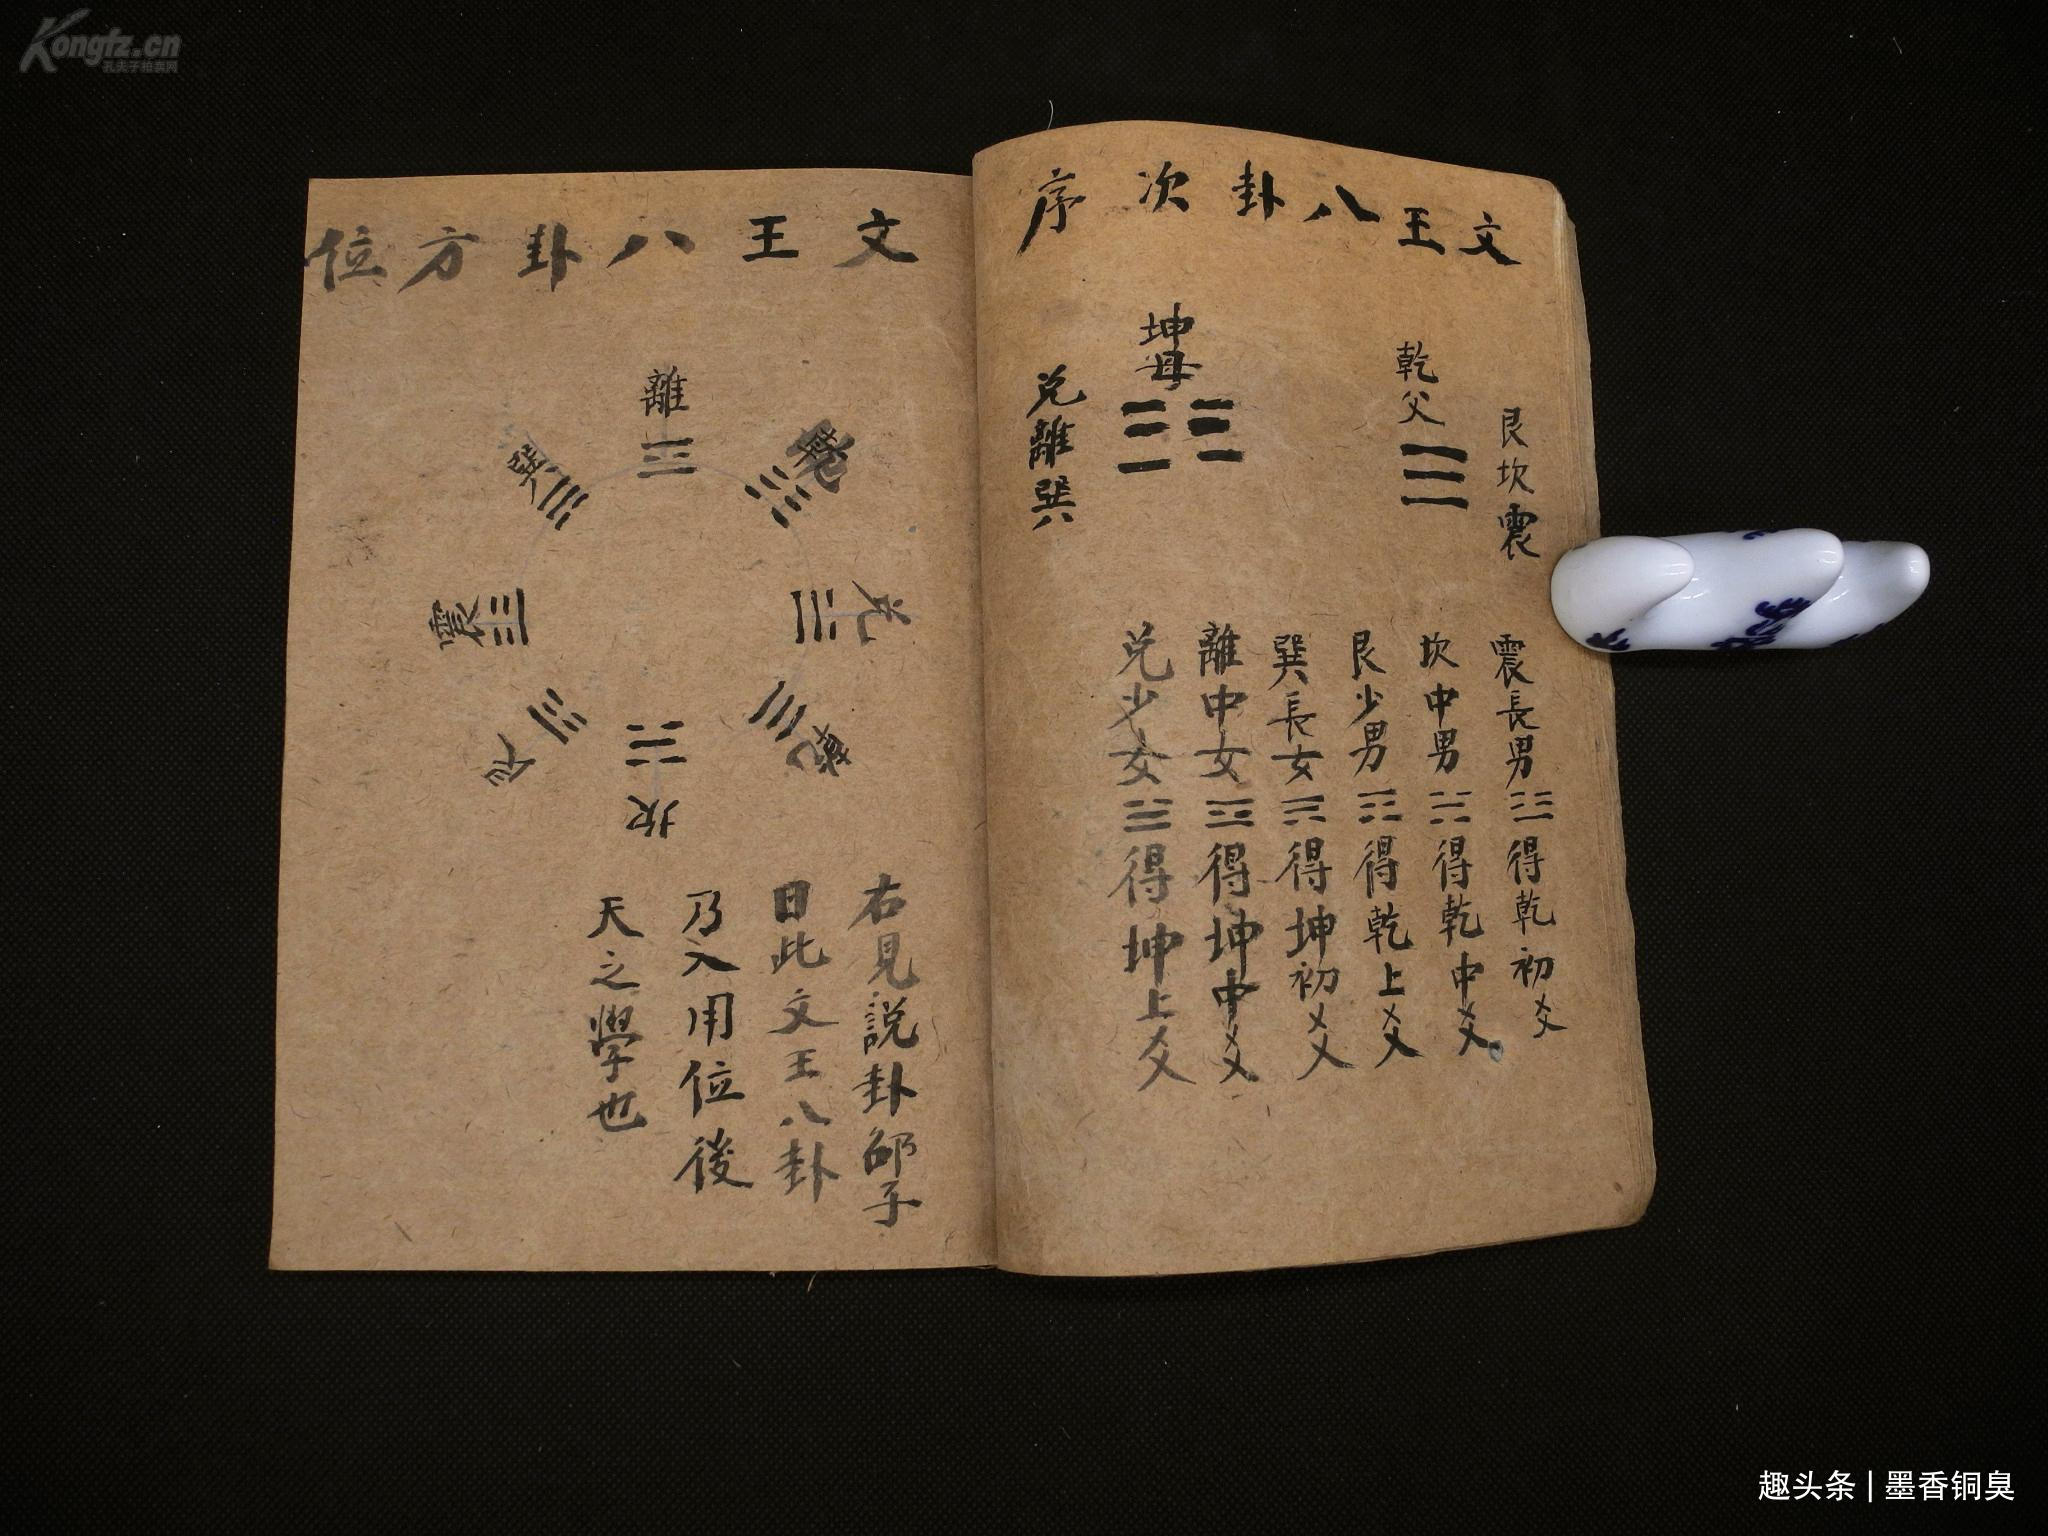 Kongfz.cn
孔夫子拍卖网
文王八卦次序
艮坎震
乾父
坤母
兑離巽
震長男☳得乾初爻
坎中男☵得乾中爻
艮少男☶得乾上爻
巽長女☴得坤初爻
離中女☲得坤中爻
兑少女☱得坤上爻
文王八卦方位
離
巽
震
兑
乾
坎
右見説卦邵子
曰此文王八卦
乃入用位後
天之學也
趣头条 | 墨香铜臭